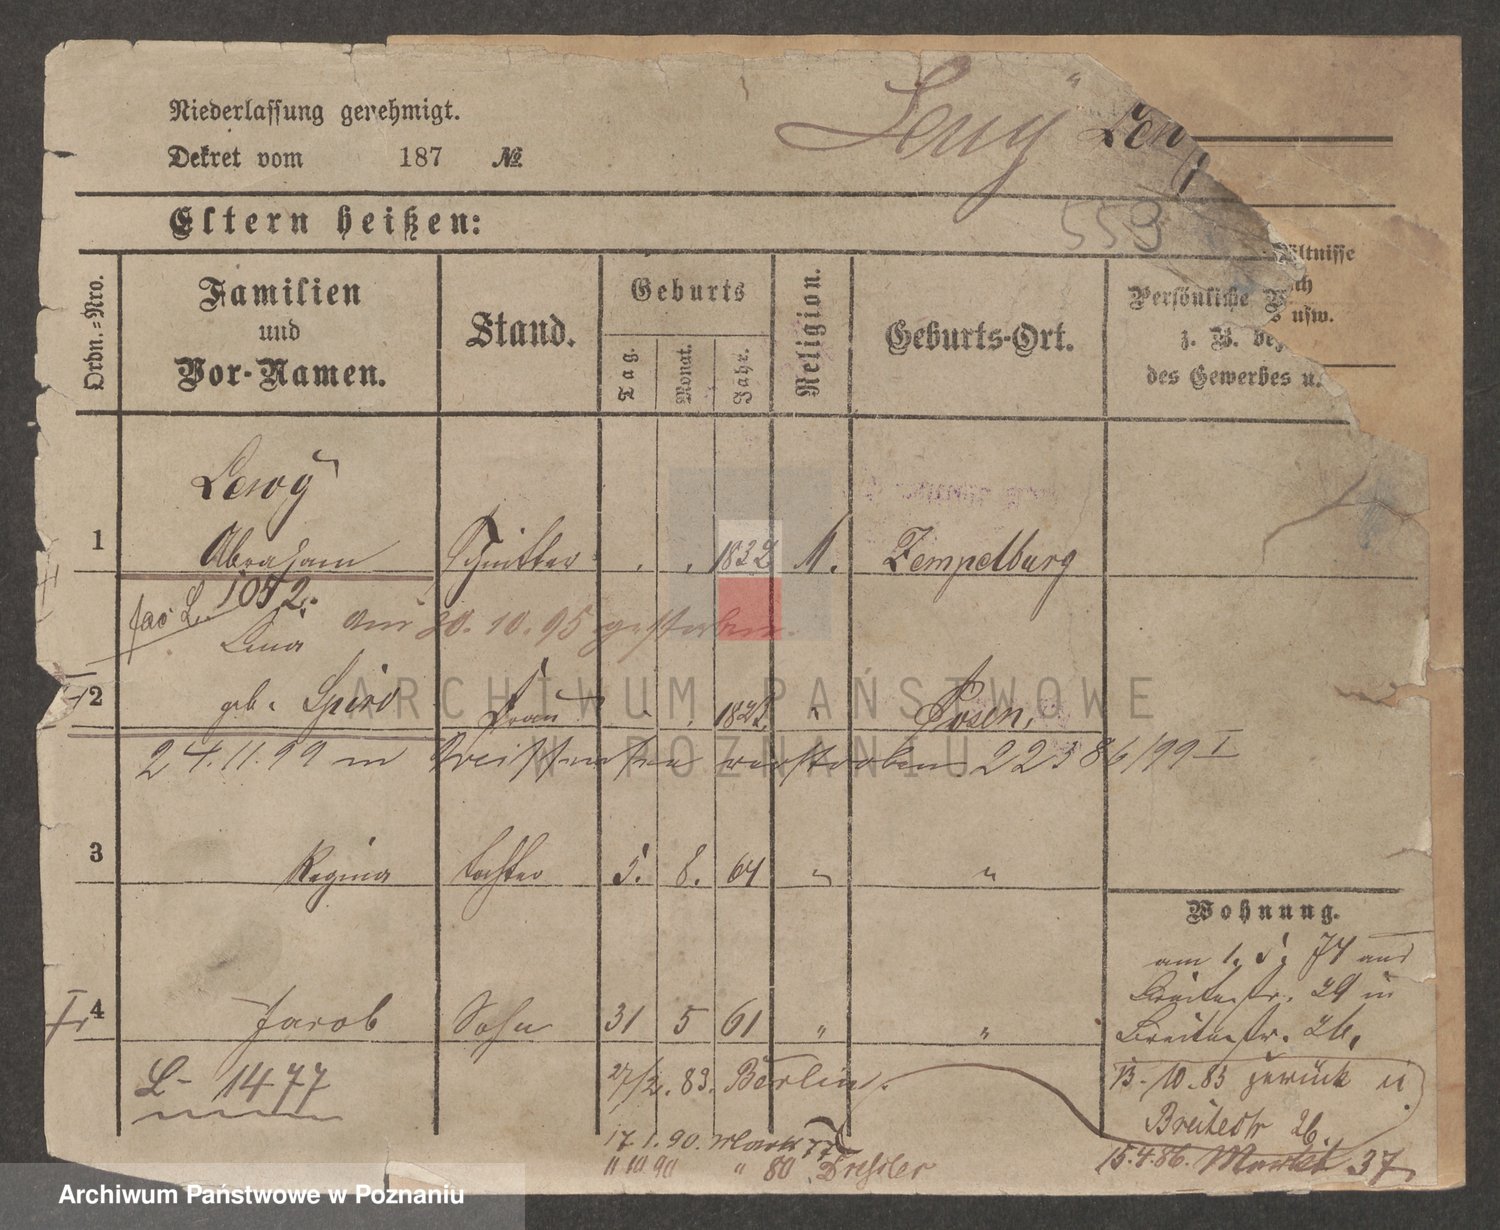 Niederlassung genehmigt.
Dekret vom 187 №
Lewy " Lewy
Eltern heißen:
559
Ordn.=Nro.
Familien
und
Vor-Namen.
Stand.
Geburts
Tag. Monat. Jahr.
Religion.
Geburts-Ort.
Persönliche
ältnisse
usw.
z. B.
des Gewerbes u.
Lewy
1 Abraham 1832 M. Zempelburg
1052.
Lina am 20.10.95 gestorben.
2 geb. Spiro Frau 182 " Posen.
24.11.99 in verstorben 22386/99 I
3 Regina Tochter 5. 8. 64 " "
Wohnung.
am 1. 5. 74 aus
Breitestr. 29 in
Breitestr. 26.
4 Jacob Sohn 31 5 61 " "
L- 1477
27/2. 83. Berlin.
13.10.83 zurück
Breitestr 26.
17.1.90. Markt 77
11.10.90 " 80 Dressler
15.4.86. Markt 37
ARCHIWUM PAŃSTWOWE
W POZNANIU
Archiwum Państwowe w Poznaniu